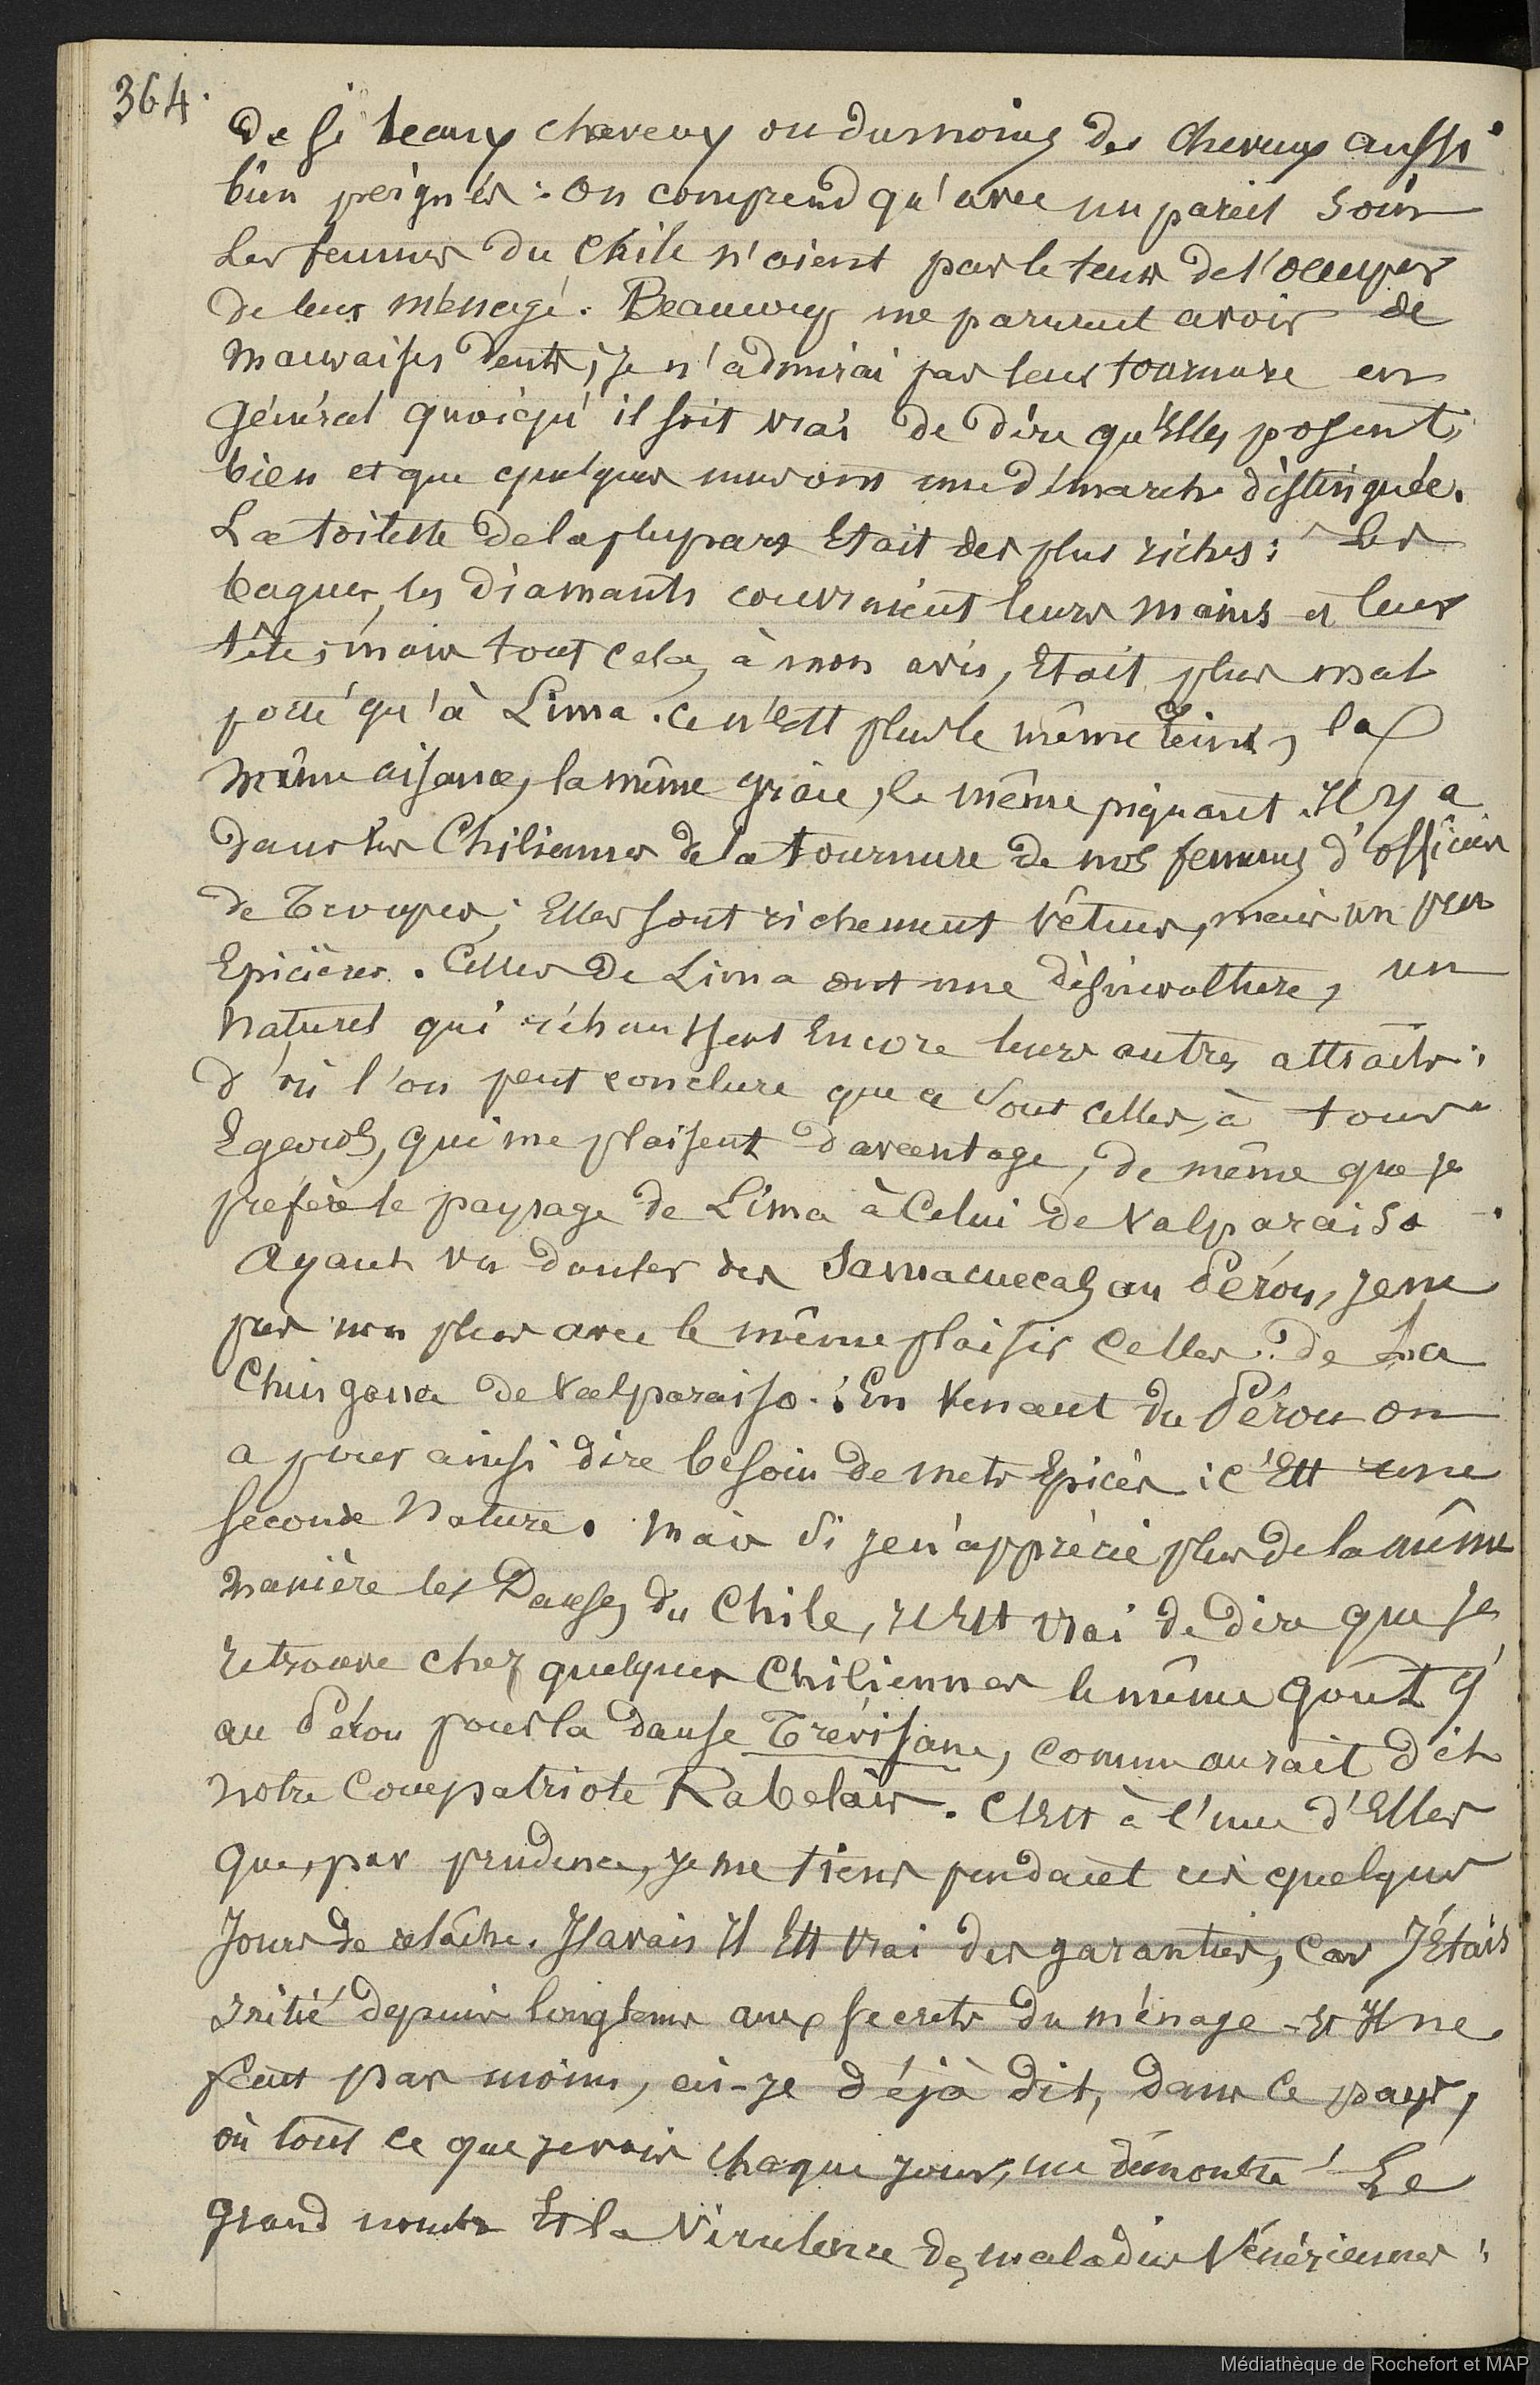 364.
de si beaux cheveux ou du moins des cheveux aussi
bien peignés : on comprend qu'avec un pareil soin
les femmes du Chile n'aient pas le tems de s'occuper
de leur ménage. Beaucoup me parurent avoir de
mauvaises dents ; je n'admirai pas leur tournure en
général quoiqu'il soit vrai de dire qu'Elles posent
bien et que quelques unes ont une démarche distinguée.
La toilette de la plupart Etait des plus riches : les
bagues, les diamants couvraient leurs mains et leur
tête ; mais tout cela, à mon avis, Etait plus mal
porté qu'à Lima. Ce n'Est plus le même teint, la
même aisance, la même grâce, le même piquant. Il y a
dans les Chiliennes de la tournure de nos femmes d'officiers
de Troupes ; Elles sont richement vêtues, mais un peu
Epicières. Celles de Lima ont une désinvolture, un
naturel qui réhaussent Encore leurs autres attraits ;
d'où l'on peut conclure que ce sont celles, à tous
Egards, qui me plaisent davantage, de même que je
préfère le paysage de Lima à Celui de Valparaiso.
Ayant vu danser des Samacuecas au Pérou, je ne
pus non plus avec le même plaisir Celles de La
Chingana de Valparaiso. En Venant du Pérou on
a pour ainsi dire besoin de mets Epicés : c'Est une
seconde Nature. Mais si je n'apprécie plus de la même
manière les Danses du Chile, il Est vrai de dire que je
retrouve chez quelques Chiliennes le même goût q'
au Pérou pour la danse Trévisane, comme aurait dit
notre Compatriote Rabelais. C'Est à l'une d'Elles
que, par prudence, je me tiens pendant ces quelques
Jours de relâche. J'avais Il Est vrai des garanties, car J'Etais
initié depuis longtems aux secrets du ménage - Et Il ne
faut pas moins, ai-je déjà dit, dans ce pays,
où tout ce que je vois chaque jour, me démontre Le
grand nombre Et la Virulence des maladies Vénériennes ;
Médiathèque de Rochefort et MAP